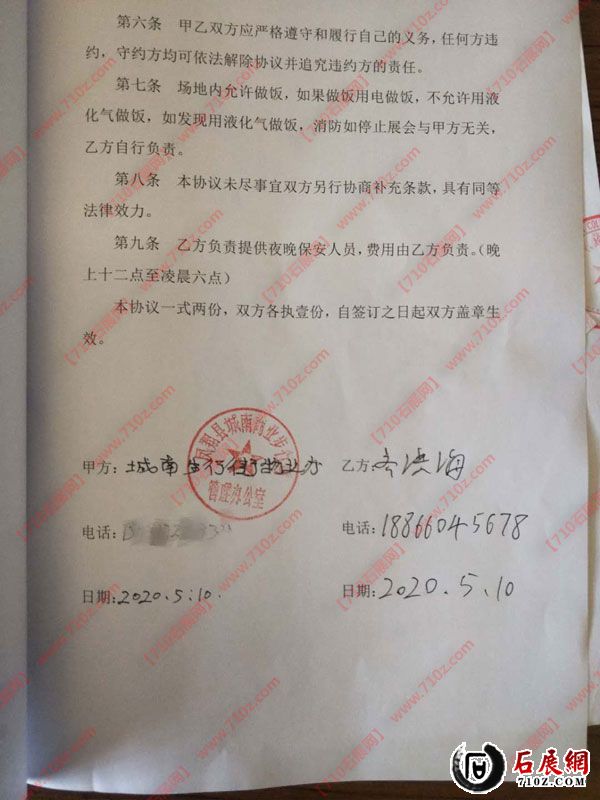 第六条 甲乙双方应严格遵守和履行自己的义务，任何方违
约，守约方均可依法解除协议并追究违约方的责任。
第七条 场地内允许做饭，如果做饭用电做饭，不允许用液
化气做饭，如发现用液化气做饭，消防如停止展会与甲方无关，
乙方自行负责。
第八条 本协议未尽事宜双方另行协商补充条款，具有同等
法律效力。
第九条 乙方负责提供夜晚保安人员，费用由乙方负责。（晚
上十二点至凌晨六点）
本协议一式两份，双方各执壹份，自签订之日起双方盖章生
效。
县城南商业步行街
管理办公室
甲方：城南步行街物业办 乙方：
电话： 电话：18866045678
日期：2020.5.10. 日期：2020.5.10
【710石展网】www.710z.com
石展網
www.710z.com